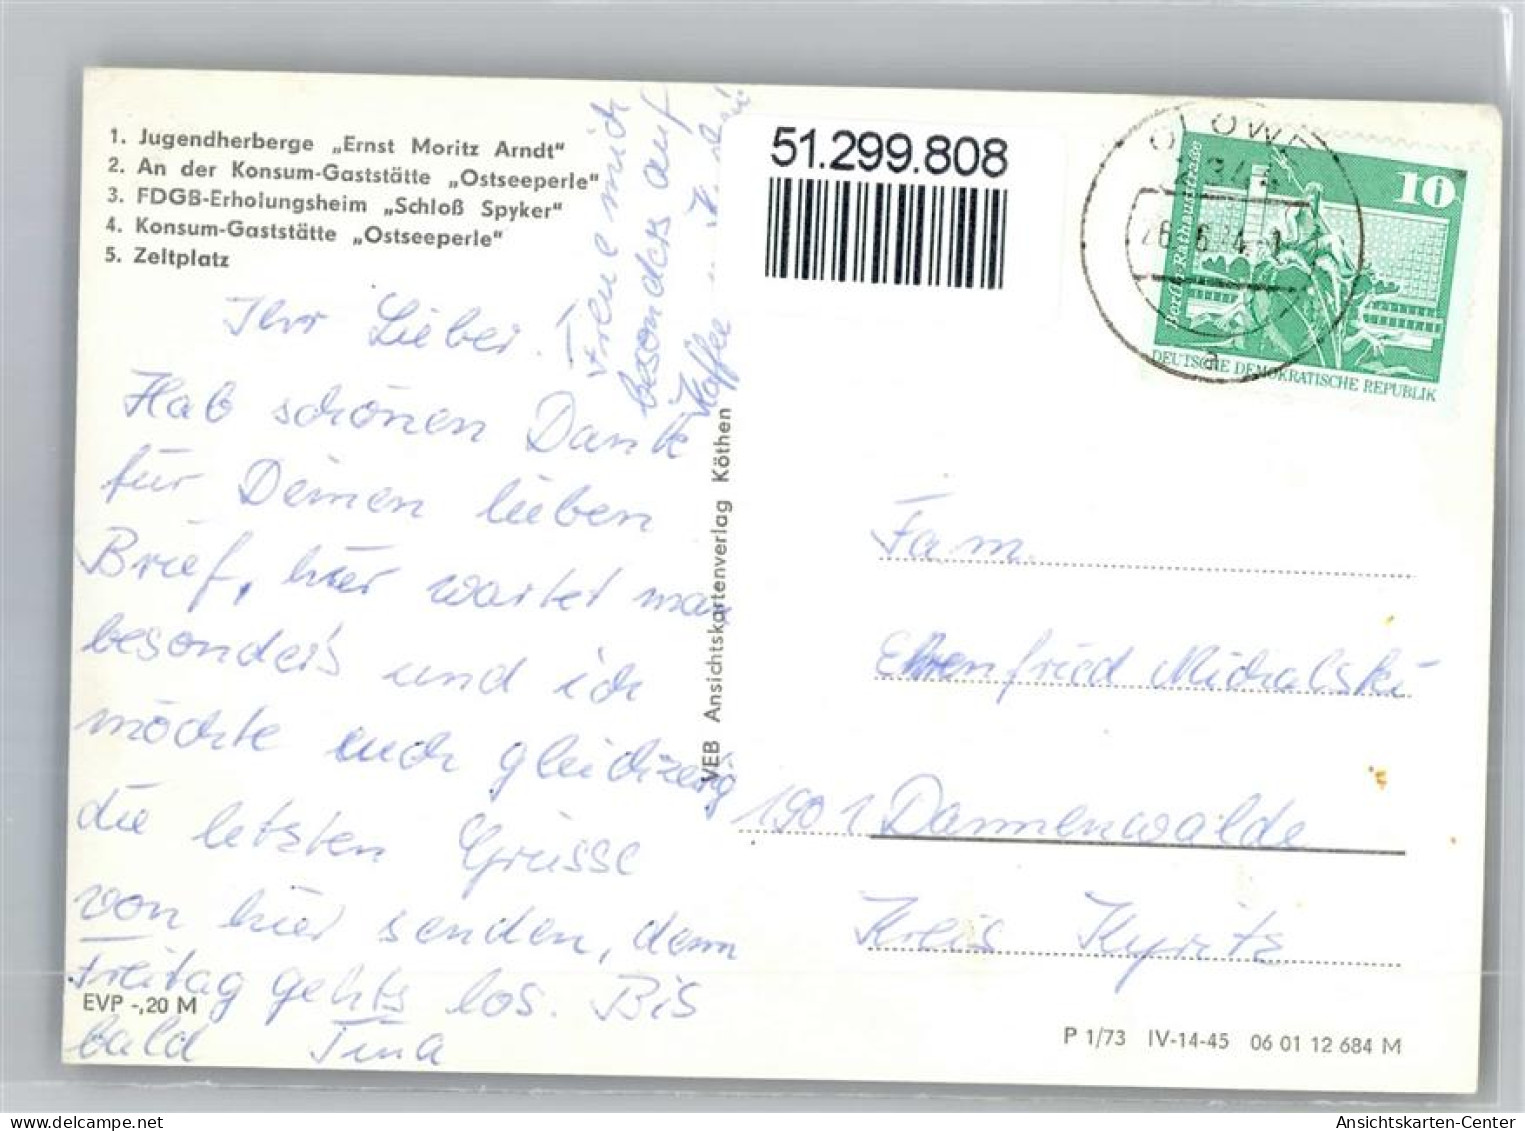 1. Jugendherberge „Ernst Moritz Arndt"
2. An der Konsum-Gaststätte „Ostseeperle"
3. FDGB-Erholungsheim „Schloß Spyker"
4. Konsum-Gaststätte „Ostseeperle"
5. Zeltplatz
Ihr Lieben!
Hab schönen Dank
für Deinen lieben
Brief, hier wartet man
besonders und ich
möchte auch gleichzeitig
die letzten Grüsse
von hier senden, denn
Freitag gehts los. Bis
bald Tina
freue mich
besonders auf
Kaffee
EVP -,20 M
VEB Ansichtskartenverlag Köthen
51.299.808
10
Berlin, Rathausstraße
DEUTSCHE DEMOKRATISCHE REPUBLIK
a
Fam.
Ehrenfried Michalski
1901 Dannenwalde
Kreis Kyritz
P 1/73 IV-14-45 06 01 12 684 M
www.delcampe.net
Ansichtskarten-Center